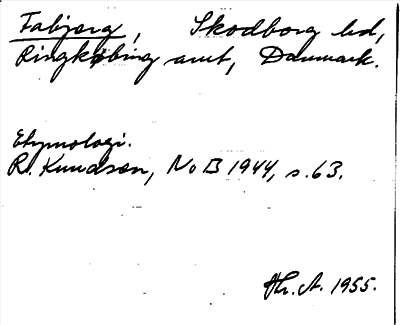 Fabjerg, Skodborg hd,
Ringkøbing amt, Danmark.
Etymologi.
R. Knudsen, NoB 1944, s. 63.
Hr. A. 1955.